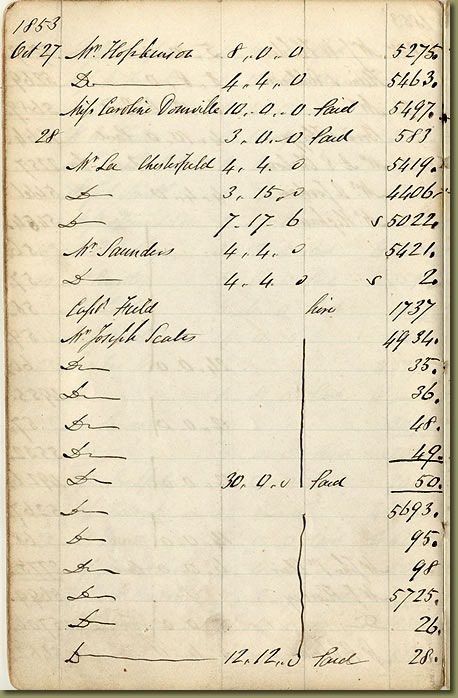 1853
Oct 27 Mr. Hopkinson 8,, 0,, 0 5275.
Do 4,, 4,, 0 5463.
Miss Caroline 10,, 0,, 0 Paid 5497.
28 3,, 0,, 0 Paid 583
Mr Lea Chesterfield 4,, 4,, 0 5419.
Do 3,, 15,, 0 4406
Do 7- 17- 6 s 5022.
Mr Saunders 4,, 4,, 0 5421.
Do 4,, 4,, 0 s 2.
Capt Field hire 1737
Mr Joseph Scates 4934.
Do 35.
Do 36.
Do 48.
Do 49.
Do 30,, 0,, 0 Paid 50.
Do 5693.
Do 95.
Do 98
Do 5725.
Do 26.
Do 12,, 12,, 0 Paid 28.